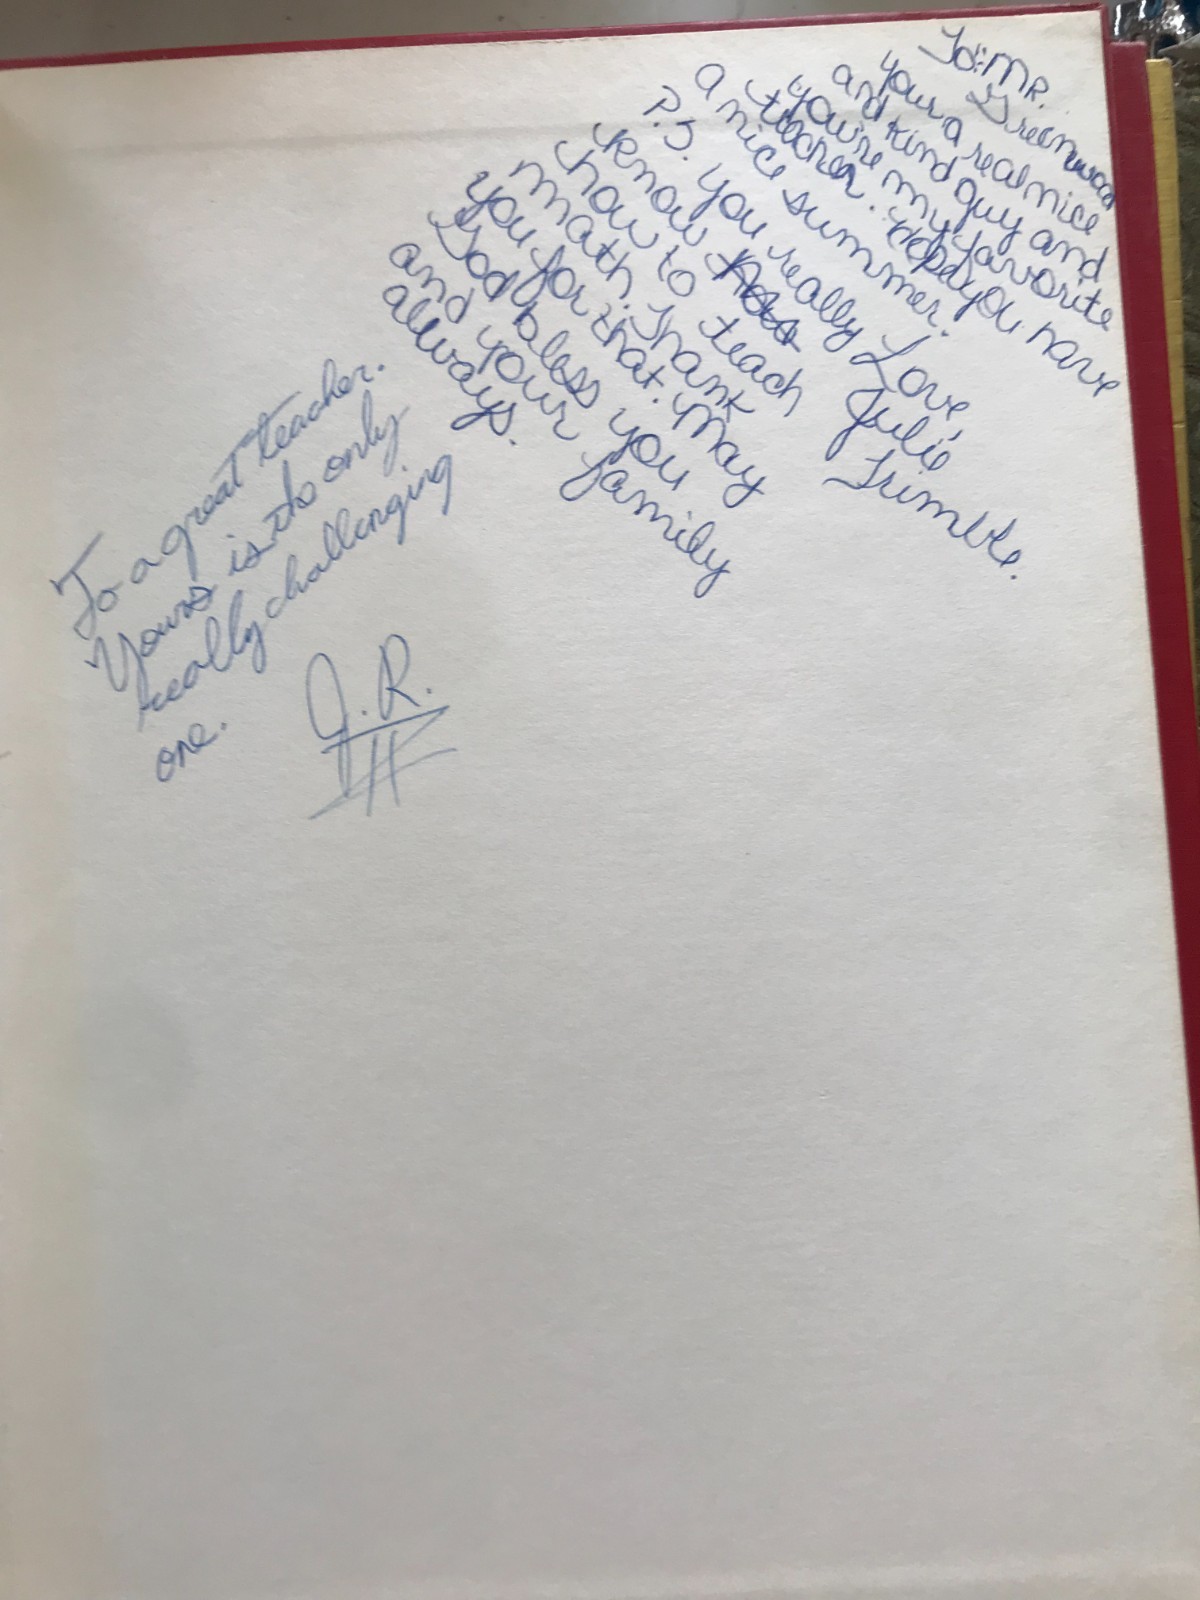 To: MR.
Greenwood
your a real nice
and kind guy and
you're my favorite
teacher. Hope you have
a nice summer.
Love,
Julie
Trimble.
P.S. you really
know
how to teach
math. Thank
you for that. May
God bless you
and your family
always.
To a great teacher.
Yours is the only
really challenging
one.
J.R.